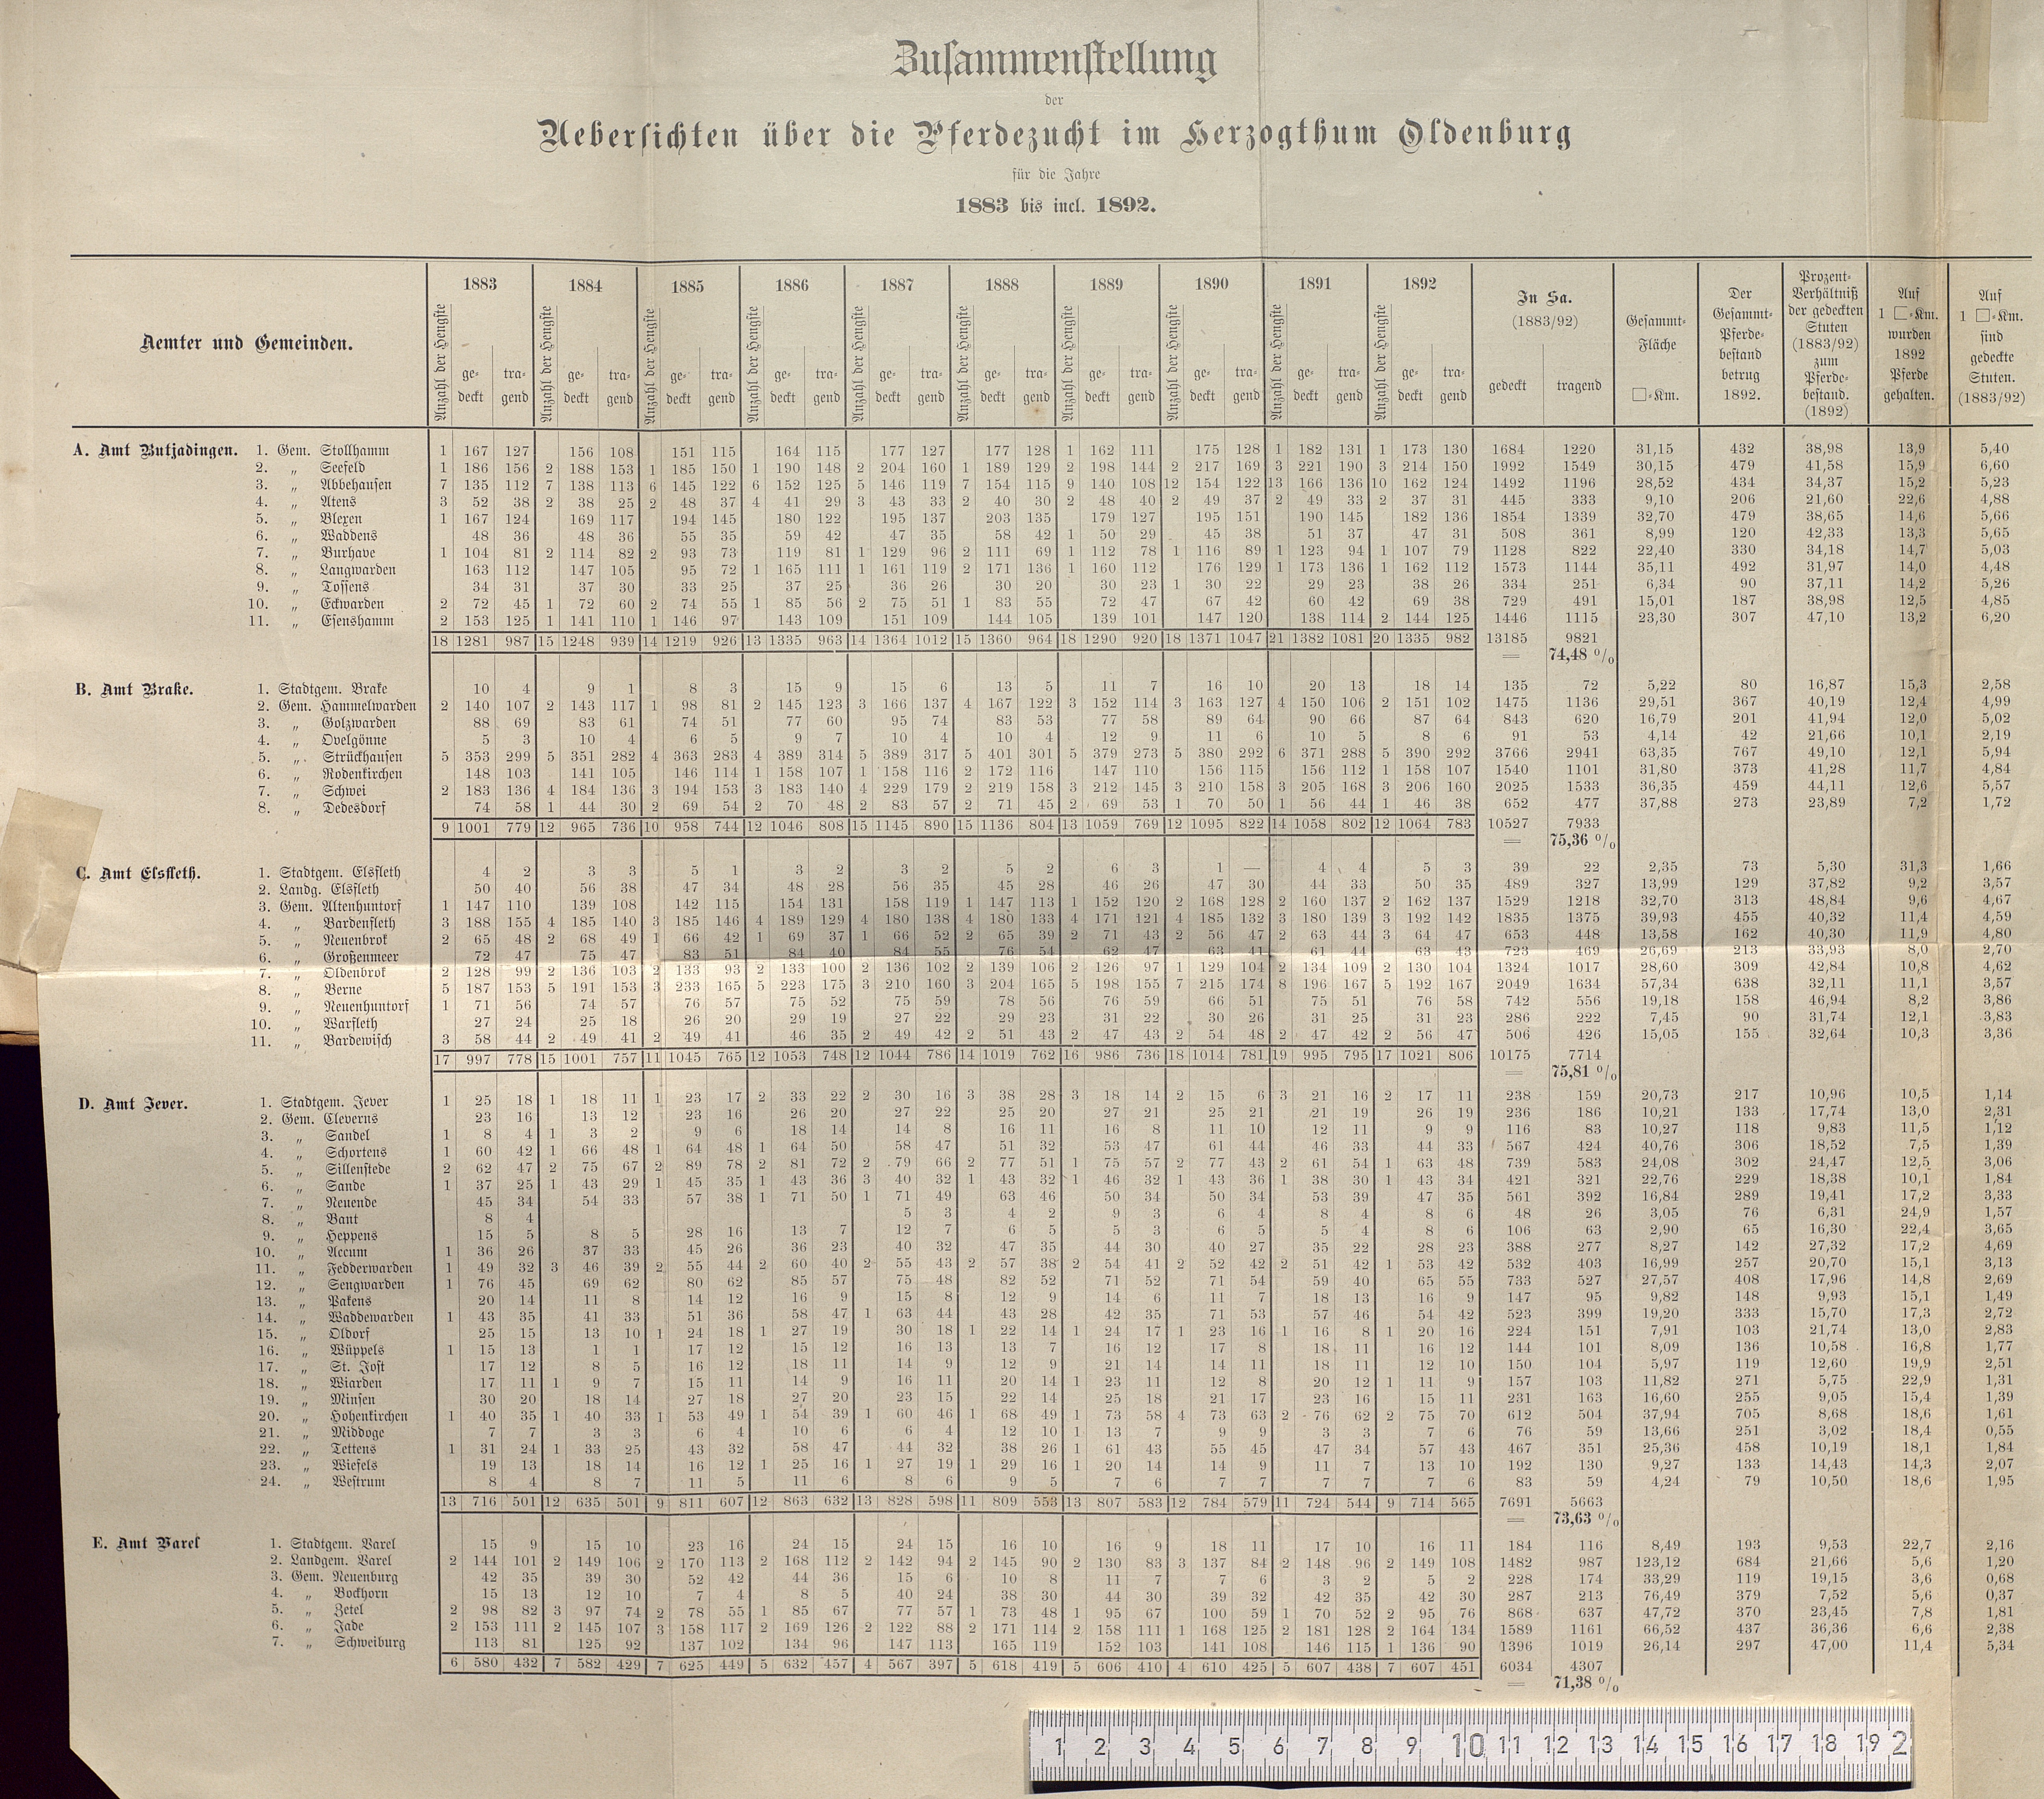 Zusammenstellung
der
Uebersichten über die Pferdezucht im Herzogthum Oldenburg
für die Jahre
1883 bis incl. 1892.
Aemter und Gemeinden. 1883 1884 1885 1886 1887 1888 1889 1890 1891 1892 In Sa. (1883/92) Gesammt-Fläche □-Km. Der Gesammt-Pferde-bestand betrug 1892. Prozent-Verhältniß der gedeckten Stuten (1883/92) zum Pferde-bestand. (1892) Auf 1 □-Km. wurden 1892 Pferde gehalten. Auf 1 □-Km. sind gedeckte Stuten. (1883/92)
Anzahl der Hengste ge-deckt tra-gend Anzahl der Hengste ge-deckt tra-gend Anzahl der Hengste ge-deckt tra-gend Anzahl der Hengste ge-deckt tra-gend Anzahl der Hengste ge-deckt tra-gend Anzahl der Hengste ge-deckt tra-gend Anzahl der Hengste ge-deckt tra-gend Anzahl der Hengste ge-deckt tra-gend Anzahl der Hengste ge-deckt tra-gend Anzahl der Hengste ge-deckt tra-gend gedeckt tragend
A. Amt Butjadingen. 1. Gem. Stollhamm 1 167 127 156 108 151 115 164 115 177 127 177 128 1 162 111 175 128 1 182 131 1 173 130 1684 1220 31,15 432 38,98 13,9 5,40
2. „ Seefeld 1 186 156 2 188 153 1 185 150 1 190 148 2 204 160 1 189 129 2 198 144 2 217 169 3 221 190 3 214 150 1992 1549 30,15 479 41,58 15,9 6,60
3. „ Abbehausen 7 135 112 7 138 113 6 145 122 6 152 125 5 146 119 7 154 115 9 140 108 12 154 122 13 166 136 10 162 124 1492 1196 28,52 434 34,37 15,2 5,23
4. „ Atens 3 52 38 2 38 25 2 48 37 4 41 29 3 43 33 2 40 30 2 48 40 2 49 37 2 49 33 2 37 31 445 333 9,10 206 21,60 22,6 4,88
5. „ Blexen 1 167 124 169 117 194 145 180 122 195 137 203 135 179 127 195 151 190 145 182 136 1854 1339 32,70 479 38,65 14,6 5,66
6. „ Waddens 48 36 48 36 55 35 59 42 47 35 58 42 1 50 29 45 38 51 37 47 31 508 361 8,99 120 42,33 13,3 5,65
7. „ Burhave 1 104 81 2 114 82 2 93 73 119 81 1 129 96 2 111 69 1 112 78 1 116 89 1 123 94 1 107 79 1128 822 22,40 330 34,18 14,7 5,03
8. „ Langwarden 163 112 147 105 95 72 1 165 111 1 161 119 2 171 136 1 160 112 176 129 1 173 136 1 162 112 1573 1144 35,11 492 31,97 14,0 4,48
9. „ Tossens 34 31 37 30 33 25 37 25 36 26 30 20 30 23 1 30 22 29 23 38 26 334 251 6,34 90 37,11 14,2 5,26
10. „ Eckwarden 2 72 45 1 72 60 2 74 55 1 85 56 2 75 51 1 83 55 72 47 67 42 60 42 69 38 729 491 15,01 187 38,98 12,5 4,85
11. „ Esenshamm 2 153 125 1 141 110 1 146 97 143 109 151 109 144 105 139 101 147 120 138 114 2 144 125 1446 1115 23,30 307 47,10 13,2 6,20
18 1281 987 15 1248 939 14 1219 926 13 1335 963 14 1364 1012 15 1360 964 18 1290 920 18 1371 1047 21 1382 1081 20 1335 982 13185 9821
= 74,48 %
B. Amt Brake. 1. Stadtgem. Brake 10 4 9 1 8 3 15 9 15 6 13 5 11 7 16 10 20 13 18 14 135 72 5,22 80 16,87 15,3 2,58
2. Gem. Hammelwarden 2 140 107 2 143 117 1 98 81 2 145 123 3 166 137 4 167 122 3 152 114 3 163 127 4 150 106 2 151 102 1475 1136 29,51 367 40,19 12,4 4,99
3. „ Golzwarden 88 69 83 61 74 51 77 60 95 74 83 53 77 58 89 64 90 66 87 64 843 620 16,79 201 41,94 12,0 5,02
4. „ Ovelgönne 5 3 10 4 6 5 9 7 10 4 10 4 12 9 11 6 10 5 8 6 91 53 4,14 42 21,66 10,1 2,19
5. „ Strückhausen 5 353 299 5 351 282 4 363 283 4 389 314 5 389 317 5 401 301 5 379 273 5 380 292 6 371 288 5 390 292 3766 2941 63,35 767 49,10 12,1 5,94
6. „ Rodenkirchen 148 103 141 105 146 114 1 158 107 1 158 116 2 172 116 147 110 156 115 156 112 1 158 107 1540 1101 31,80 373 41,28 11,7 4,84
7. „ Schwei 2 183 136 4 184 136 3 194 153 3 183 140 4 229 179 2 219 158 3 212 145 3 210 158 3 205 168 3 206 160 2025 1533 36,35 459 44,11 12,6 5,57
8. „ Dedesdorf 74 58 1 44 30 2 69 54 2 70 48 2 83 57 2 71 45 2 69 53 1 70 50 1 56 44 1 46 38 652 477 37,88 273 23,89 7,2 1,72
9 1001 779 12 965 736 10 958 744 12 1046 808 15 1145 890 15 1136 804 13 1059 769 12 1095 822 14 1058 802 12 1064 783 10527 7933
= 75,36 %
C. Amt Elsfleth. 1. Stadtgem. Elsfleth 4 2 3 3 5 1 3 2 3 2 5 2 6 3 1 — 4 4 5 3 39 22 2,35 73 5,30 31,3 1,66
2. Landg. Elsfleth 50 40 56 38 47 34 48 28 56 35 45 28 46 26 47 30 44 33 50 35 489 327 13,99 129 37,82 9,2 3,57
3. Gem. Altenhuntorf 1 147 110 139 108 142 115 154 131 158 119 1 147 113 1 152 120 2 168 128 2 160 137 2 162 137 1529 1218 32,70 313 48,84 9,6 4,67
4. „ Bardenfleth 3 188 155 4 185 140 3 185 146 4 189 129 4 180 138 4 180 133 4 171 121 4 185 132 3 180 139 3 192 142 1835 1375 39,93 455 40,32 11,4 4,59
5. „ Neuenbrok 2 65 48 2 68 49 1 66 42 1 69 37 1 66 52 2 65 39 2 71 43 2 56 47 2 63 44 3 64 47 653 448 13,58 162 40,30 11,9 4,80
6. „ Großenmeer 72 47 75 47 83 51 84 40 84 55 76 54 62 47 63 41 61 44 63 43 723 469 26,69 213 33,93 8,0 2,70
7. „ Oldenbrok 2 128 99 2 136 103 2 133 93 2 133 100 2 136 102 2 139 106 2 126 97 1 129 104 2 134 109 2 130 104 1324 1017 28,60 309 42,84 10,8 4,62
8. „ Berne 5 187 153 5 191 153 3 233 165 5 223 175 3 210 160 3 204 165 5 198 155 7 215 174 8 196 167 5 192 167 2049 1634 57,34 638 32,11 11,1 3,57
9. „ Neuenhuntorf 1 71 56 74 57 76 57 75 52 75 59 78 56 76 59 66 51 75 51 76 58 742 556 19,18 158 46,94 8,2 3,86
10. „ Warfleth 27 24 25 18 26 20 29 19 27 22 29 23 31 22 30 26 31 25 31 23 286 222 7,45 90 31,74 12,1 3,83
11. „ Bardewisch 3 58 44 2 49 41 2 49 41 46 35 2 49 42 2 51 43 2 47 43 2 54 48 2 47 42 2 56 47 506 426 15,05 155 32,64 10,3 3,36
17 997 778 15 1001 757 11 1045 765 12 1053 748 12 1044 786 14 1019 762 16 986 736 18 1014 781 19 995 795 17 1021 806 10175 7714
= 75,81 %
D. Amt Jever. 1. Stadtgem. Jever 1 25 18 1 18 11 1 23 17 2 33 22 2 30 16 3 38 28 3 18 14 2 15 6 3 21 16 2 17 11 238 159 20,73 217 10,96 10,5 1,14
2. Gem. Cleverns 23 16 13 12 23 16 26 20 27 22 25 20 27 21 25 21 21 19 26 19 236 186 10,21 133 17,74 13,0 2,31
3. „ Sandel 1 8 4 1 3 2 9 6 18 14 14 8 16 11 16 8 11 10 12 11 9 9 116 83 10,27 118 9,83 11,5 1,12
4. „ Schortens 1 60 42 1 66 48 1 64 48 1 64 50 58 47 51 32 53 47 61 44 46 33 44 33 567 424 40,76 306 18,52 7,5 1,39
5. „ Sillenstede 2 62 47 2 75 67 2 89 78 2 81 72 2 79 66 2 77 51 1 75 57 2 77 43 2 61 54 1 63 48 739 583 24,08 302 24,47 12,5 3,06
6. „ Sande 1 37 25 1 43 29 1 45 35 1 43 36 3 40 32 1 43 32 1 46 32 1 43 36 1 38 30 1 43 34 421 321 22,76 229 18,38 10,1 1,84
7. „ Neuende 45 34 54 33 57 38 1 71 50 1 71 49 63 46 50 34 50 34 53 39 47 35 561 392 16,84 289 19,41 17,2 3,33
8. „ Bant 8 4 5 3 4 2 9 3 6 4 8 4 8 6 48 26 3,05 76 6,31 24,9 1,57
9. „ Heppens 15 5 8 5 28 16 13 7 12 7 6 5 5 3 6 5 5 4 8 6 106 63 2,90 65 16,30 22,4 3,65
10. „ Accum 1 36 26 37 33 45 26 36 23 40 32 47 35 44 30 40 27 35 22 28 23 388 277 8,27 142 27,32 17,2 4,69
11. „ Fedderwarden 1 49 32 3 46 39 2 55 44 2 60 40 2 55 43 2 57 38 2 54 41 2 52 42 2 51 42 1 53 42 532 403 16,99 257 20,70 15,1 3,13
12. „ Sengwarden 1 76 45 69 62 80 62 85 57 75 48 82 52 71 52 71 54 59 40 65 55 733 527 27,57 408 17,96 14,8 2,69
13. „ Pakens 20 14 11 8 14 12 16 9 15 8 12 9 14 6 11 7 18 13 16 9 147 95 9,82 148 9,93 15,1 1,49
14. „ Waddewarden 1 43 35 41 33 51 36 58 47 1 63 44 43 28 42 35 71 53 57 46 54 42 523 399 19,20 333 15,70 17,3 2,72
15. „ Oldorf 25 15 13 10 1 24 18 1 27 19 30 18 1 22 14 1 24 17 1 23 16 1 16 8 1 20 16 224 151 7,91 103 21,74 13,0 2,83
16. „ Wüppels 1 15 13 1 1 17 12 15 12 16 13 13 7 16 12 17 8 18 11 16 12 144 101 8,09 136 10,58 16,8 1,77
17. „ St. Jost 17 12 8 5 16 12 18 11 14 9 12 9 21 14 14 11 18 11 12 10 150 104 5,97 119 12,60 19,9 2,51
18. „ Wiarden 17 11 1 9 7 15 11 14 9 16 11 20 14 1 23 11 12 8 20 12 1 11 9 157 103 11,82 271 5,75 22,9 1,31
19. „ Minsen 30 20 18 14 27 18 27 20 23 15 22 14 25 18 21 17 23 16 15 11 231 163 16,60 255 9,05 15,4 1,39
20. „ Hohenkirchen 1 40 35 1 40 33 1 53 49 1 54 39 1 60 46 1 68 49 1 73 58 4 73 63 2 76 62 2 75 70 612 504 37,94 705 8,68 18,6 1,61
21. „ Middoge 7 7 3 3 6 4 10 6 6 4 12 10 1 13 7 9 9 3 3 7 6 76 59 13,66 251 3,02 18,4 0,55
22. „ Tettens 1 31 24 1 33 25 43 32 58 47 44 32 38 26 1 61 43 55 45 47 34 57 43 467 351 25,36 458 10,19 18,1 1,84
23. „ Wiefels 19 13 18 14 16 12 1 25 16 1 27 19 1 29 16 1 20 14 14 9 11 7 13 10 192 130 9,27 133 14,43 14,3 2,07
24. „ Westrum 8 4 8 7 11 5 11 6 8 6 9 5 7 6 7 7 7 7 7 6 83 59 4,24 79 10,50 18,6 1,95
13 716 501 12 635 501 9 811 607 12 863 632 13 828 598 11 809 553 13 807 583 12 784 579 11 724 544 9 714 565 7691 5663
= 73,63 %
E. Amt Varel 1. Stadtgem. Varel 15 9 15 10 23 16 24 15 24 15 16 10 16 9 18 11 17 10 16 11 184 116 8,49 193 9,53 22,7 2,16
2. Landgem. Varel 2 144 101 2 149 106 2 170 113 2 168 112 2 142 94 2 145 90 2 130 83 3 137 84 2 148 96 2 149 108 1482 987 123,12 684 21,66 5,6 1,20
3. Gem. Neuenburg 42 35 39 30 52 42 44 36 15 6 10 8 11 7 7 6 3 2 5 2 228 174 33,29 119 19,15 3,6 0,68
4. „ Bockhorn 15 13 12 10 7 4 8 5 40 24 38 30 44 30 39 32 42 35 42 30 287 213 76,49 379 7,52 5,6 0,37
5. „ Zetel 2 98 82 3 97 74 2 78 55 1 85 67 77 57 1 73 48 1 95 67 100 59 1 70 52 2 95 76 868 637 47,72 370 23,45 7,8 1,81
6. „ Jade 2 153 111 2 145 107 3 158 117 2 169 126 2 122 88 2 171 114 2 158 111 1 168 125 2 181 128 2 164 134 1589 1161 66,52 437 36,36 6,6 2,38
7. „ Schweiburg 113 81 125 92 137 102 134 96 147 113 165 119 152 103 141 108 146 115 1 136 90 1396 1019 26,14 297 47,00 11,4 5,34
6 580 432 7 582 429 7 625 449 5 632 457 4 567 397 5 618 419 5 606 410 4 610 425 5 607 438 7 607 451 6034 4307
= 71,38 %
1 2 3 4 5 6 7 8 9 10 11 12 13 14 15 16 17 18 19 2